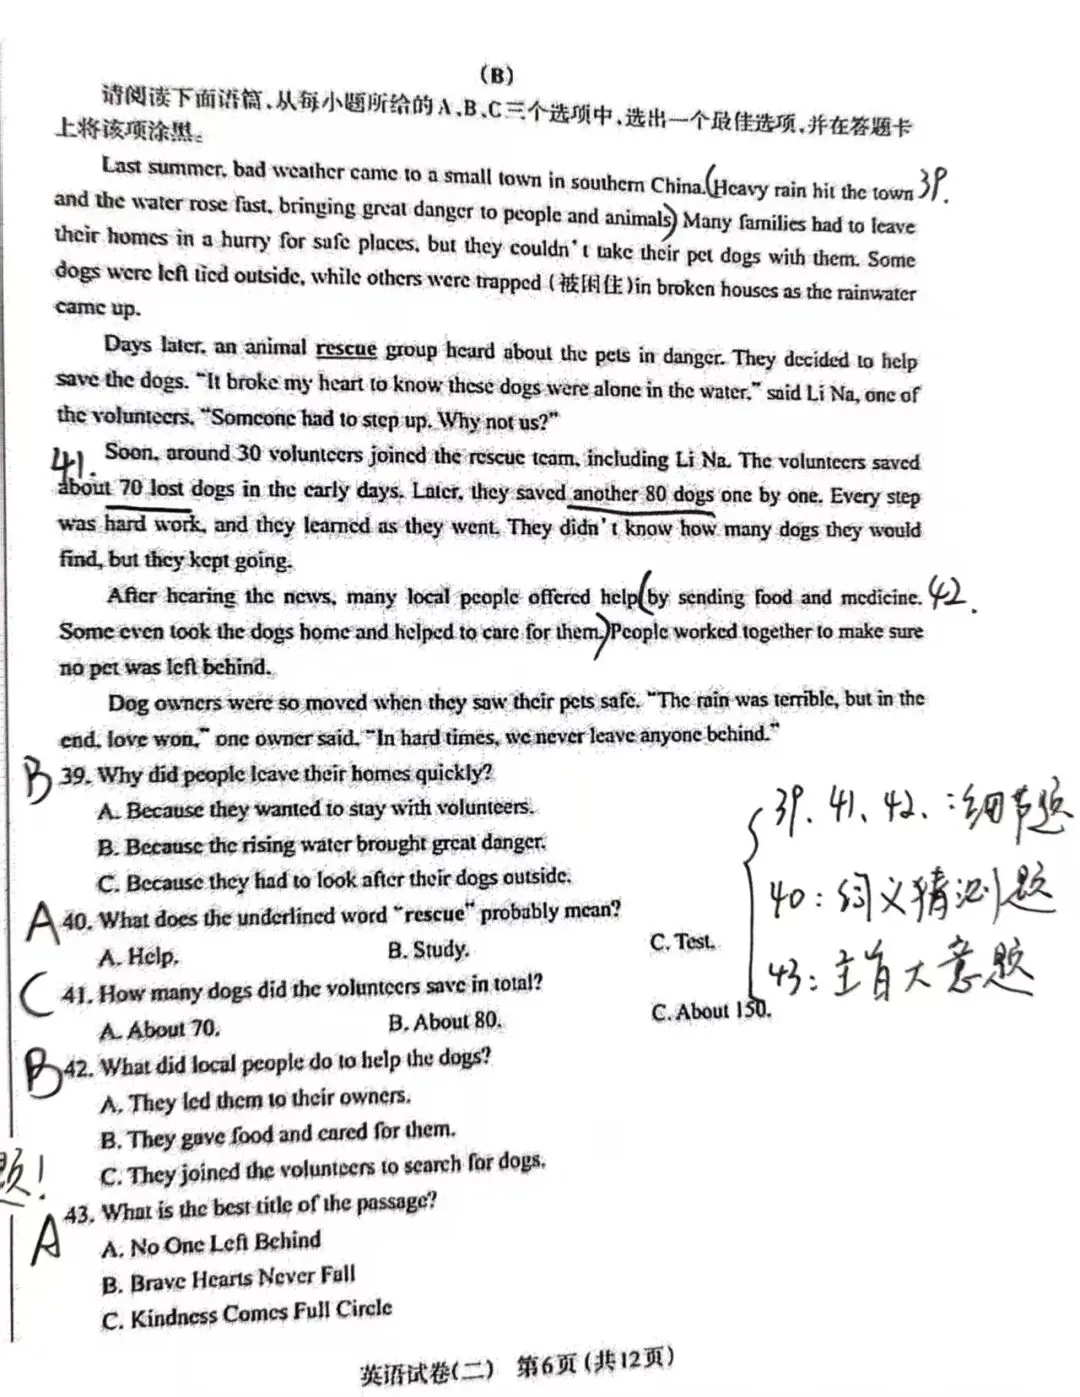 (B)
请阅读下面语篇,从每小题所给的A、B、C三个选项中,选出一个最佳选项,并在答题卡
上将该项涂黑。
Last summer, bad weather came to a small town in southern China.(Heavy rain hit the town 39.
and the water rose fast, bringing great danger to people and animals) Many families had to leave
their homes in a hurry for safe places, but they couldn't take their pet dogs with them. Some
dogs were left tied outside, while others were trapped (被困住)in broken houses as the rainwater
came up.
Days later, an animal rescue group heard about the pets in danger. They decided to help
save the dogs. "It broke my heart to know these dogs were alone in the water," said Li Na, one of
the volunteers. "Someone had to step up. Why not us?"
41. Soon, around 30 volunteers joined the rescue team, including Li Na. The volunteers saved
about 70 lost dogs in the early days. Later, they saved another 80 dogs one by one. Every step
was hard work, and they learned as they went. They didn't know how many dogs they would
find, but they kept going.
After hearing the news, many local people offered help(by sending food and medicine. 42.
Some even took the dogs home and helped to care for them.)People worked together to make sure
no pet was left behind.
Dog owners were so moved when they saw their pets safe. "The rain was terrible, but in the
end, love won," one owner said. "In hard times, we never leave anyone behind."
B 39. Why did people leave their homes quickly?
A. Because they wanted to stay with volunteers.
B. Because the rising water brought great danger.
C. Because they had to look after their dogs outside.
39、41、42、:细节题
A 40. What does the underlined word "rescue" probably mean?
A. Help. B. Study. C. Test.
40:词义猜测题
C 41. How many dogs did the volunteers save in total?
A. About 70. B. About 80. C. About 150.
43:主旨大意题
B 42. What did local people do to help the dogs?
A. They led them to their owners.
B. They gave food and cared for them.
C. They joined the volunteers to search for dogs.
题!
A 43. What is the best title of the passage?
A. No One Left Behind
B. Brave Hearts Never Fall
C. Kindness Comes Full Circle
英语试卷(二) 第6页(共12页)